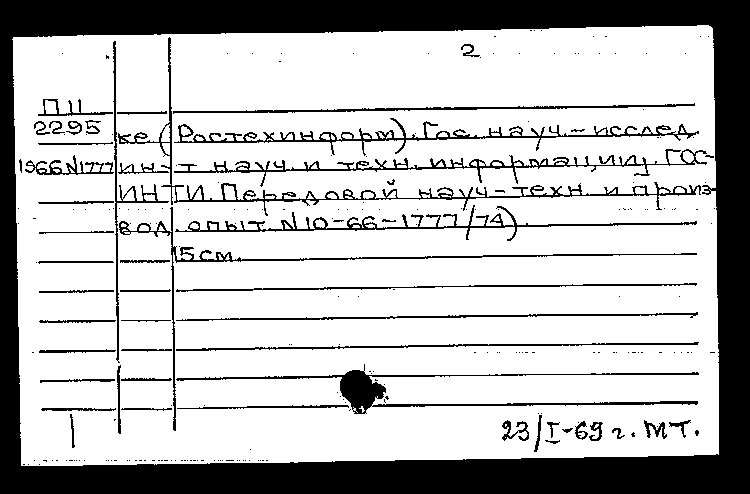 2
П 11
2295
ке (Ростехинформ). Гос. науч.-исслед.
1966 N1777 ин-т науч. и техн. информации. ГОС-
ИНТИ. Передовой науч-техн. и произ-
вод. опыт. N 10-66-1777/74).
15 см.
23/I-69 г. МТ.